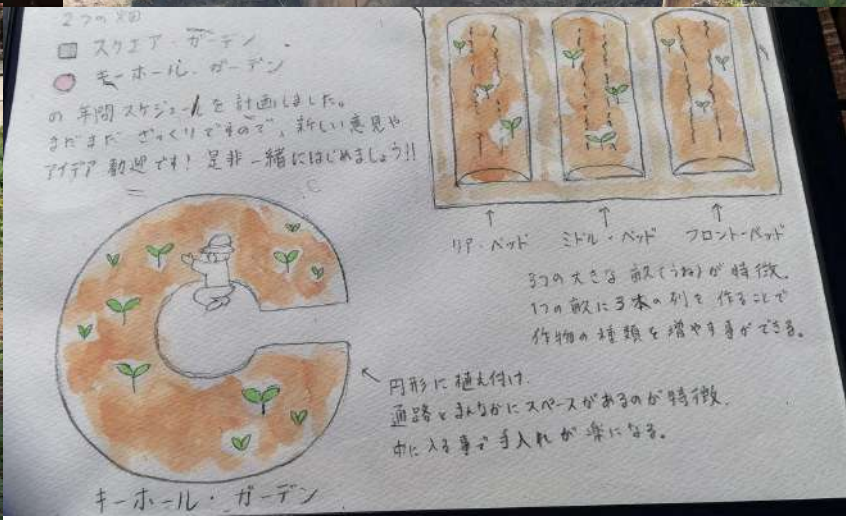 2つの畑
スクエア・ガーデン
キーホール・ガーデン
の年間スケジュールを計画しました。
まだまだ ざっくりですので、新しい意見や
アイデア歓迎です! 是非一緒にはじめましょう!!
リア・ベッド ミドル・ベッド フロント・ベッド
3つの大きな畝(うね)が特徴。
1つの畝に3本の列を作ることで
作物の種類を増やす事ができる。
円形に植え付け.
通路とまんなかにスペースがあるのが特徴.
中に入る事で手入れが楽になる。
キーホール・ガーデン